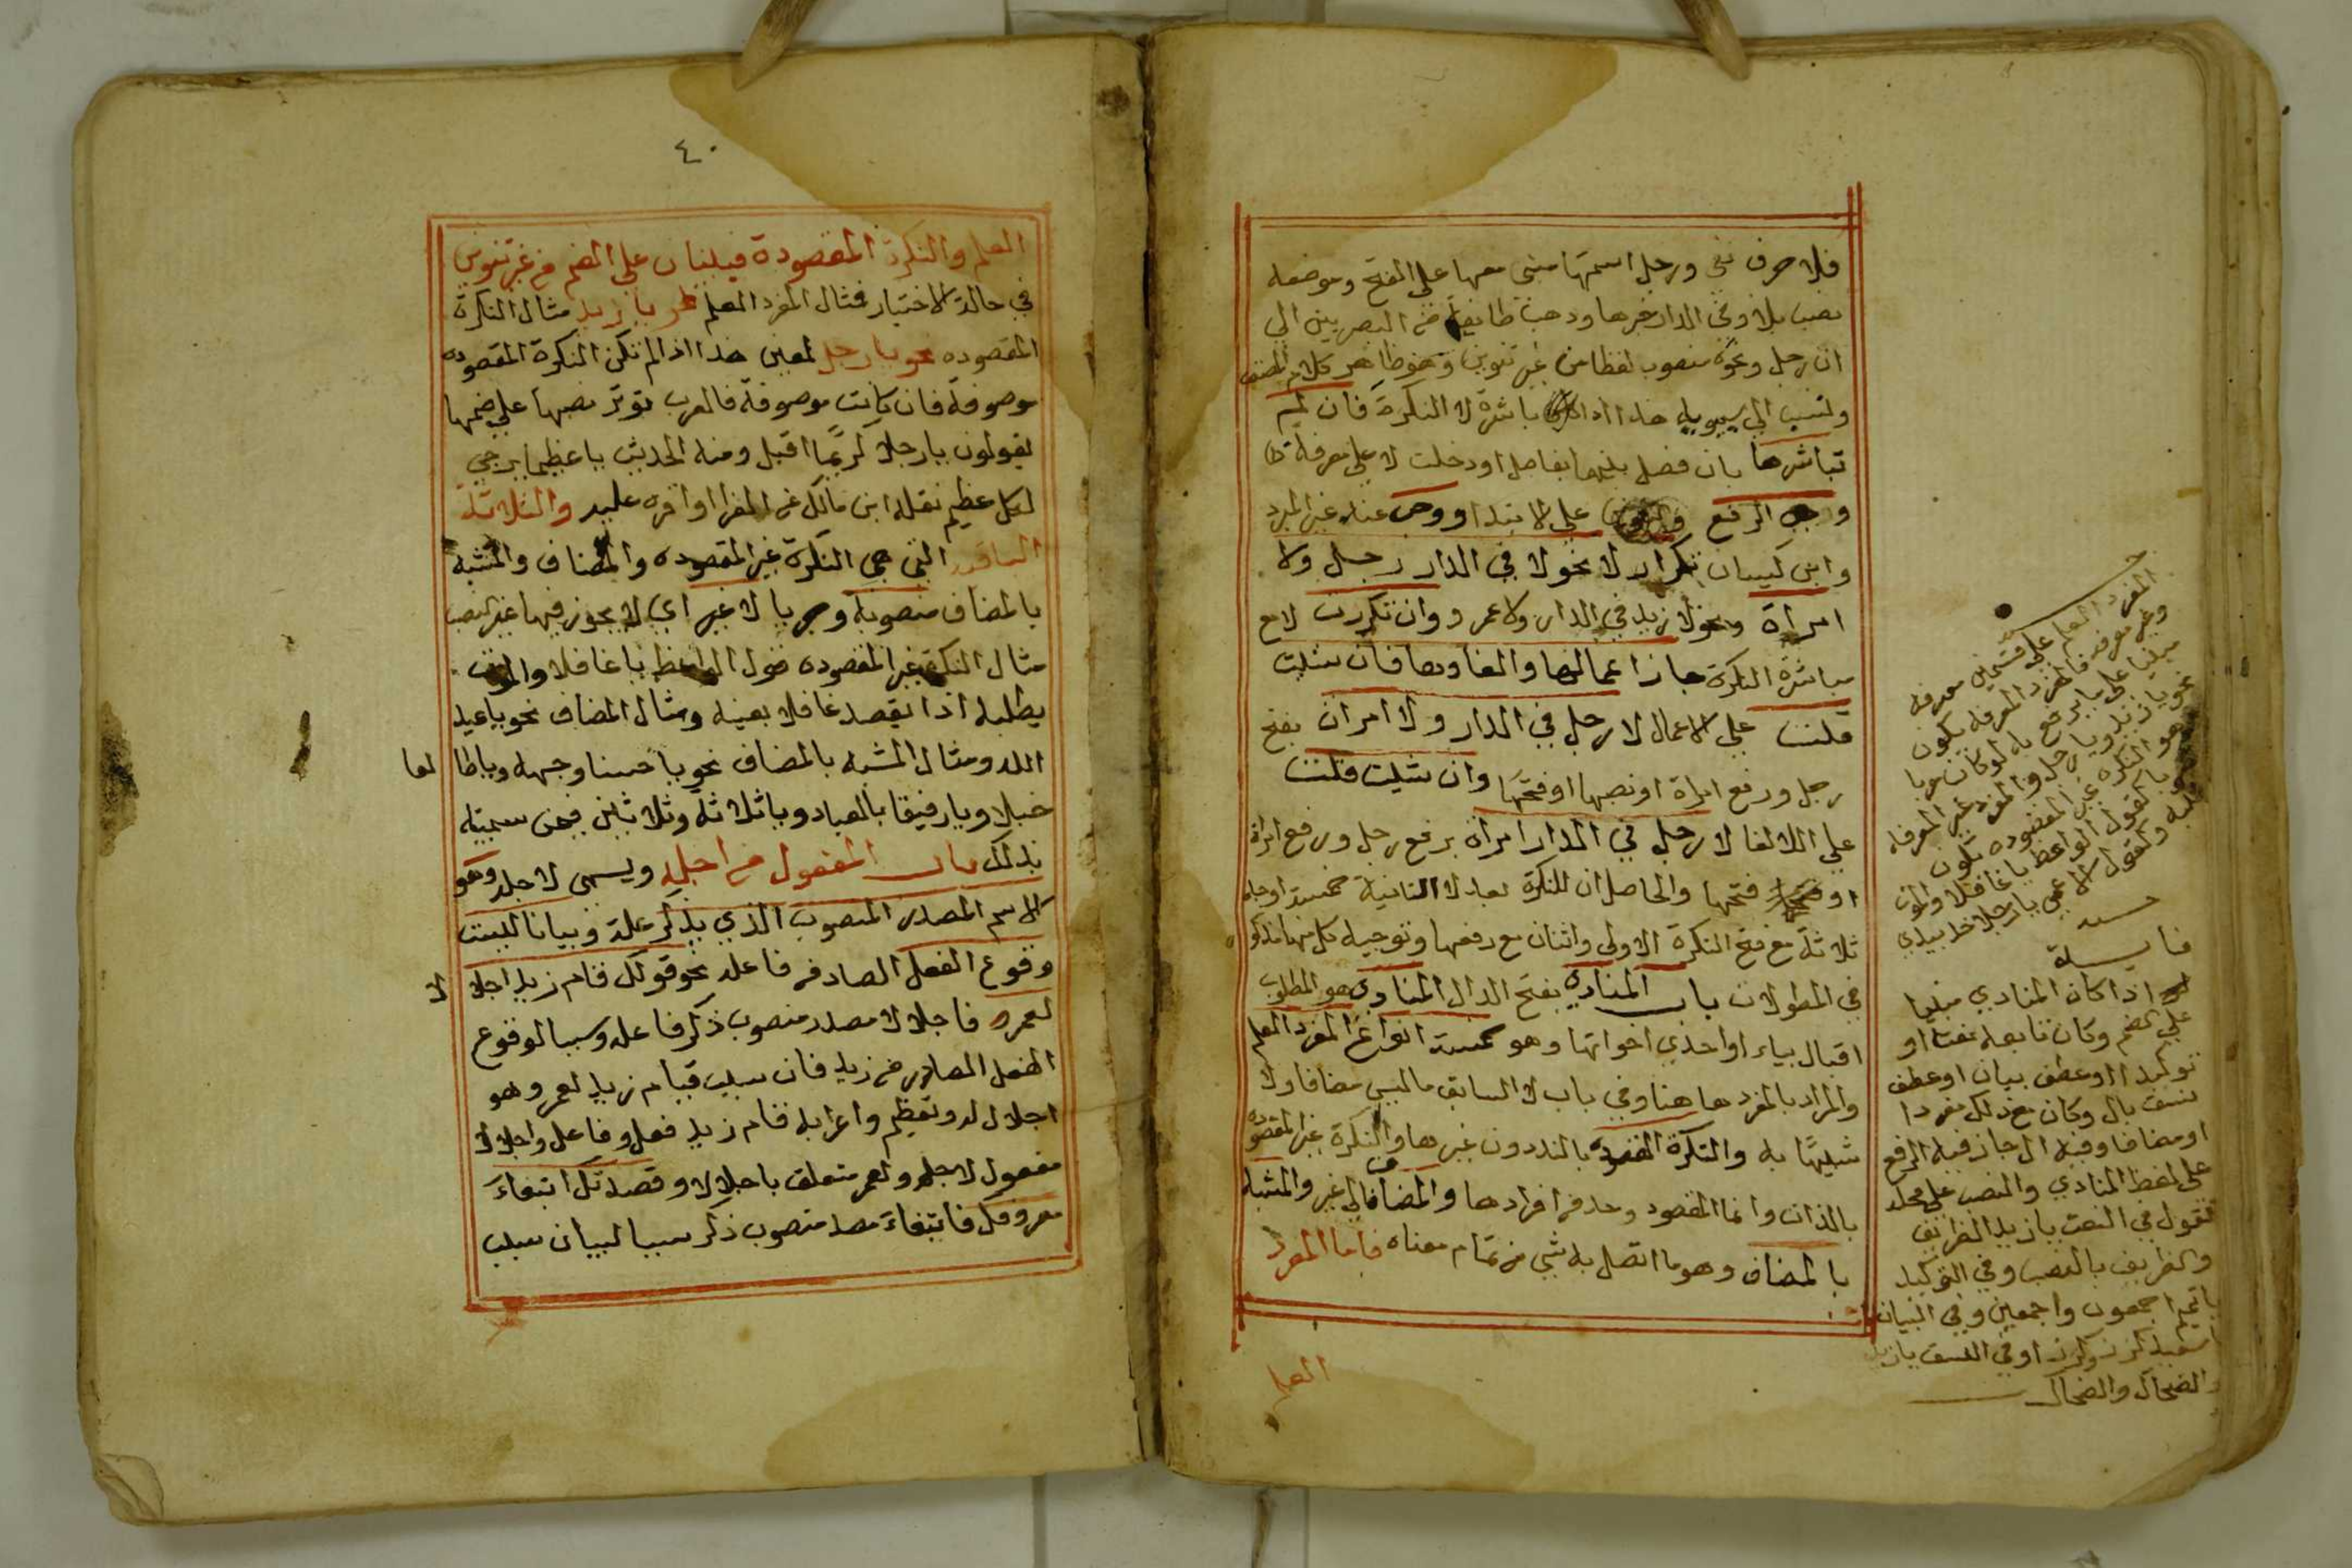 فلا حرف نفي ورجل اسمها مبنى معها على الفتح وموضعه
نصب بلا وفي الدار خبرها وذهبت طايفة من البصريين الي
ان رجل ونحوه منصوب لفظا من غير تنوين وهو ظاهر كلام المصنف
ونسب الي سيبويه هذا اذا باشرة لا النكرة فان لم
تباشرها بان فصل بينهما بفاصل او دخلت لا على معرفة
وجب الرفع على الابتدا ووجب عند غير المبرد
وابن كيسان تكرار لا نحو لا في الدار رجل ولا
امراة ونحو لا زيد في الدار ولا عمرو وان تكررت لا مع
مباشرة النكرة جاز اعمالها والغاوها فان شيت
قلت على الاعمال لا رجل في الدار ولا امراة بفتح
رجل ورفع امراة او نصبها او فتحها وان شيت قلت
علي الالغا لا رجل في الدار امراة برفع رجل ورفع امراة
او فتحها والحاصل ان للنكرة بعد لا الثانية خمسة اوجه
ثلاثة مع فتح النكرة الاولى واثنان مع رفعها وتوجيه كل منها مذكو
في المطولات باب المنادى بفتح الدال المنادى هو المطلوب
اقباله بياء او احدي اخواتها وهو خمسة انواع المفرد العلم
والمراد بالمفرد هاهنا وفي باب لا السابق ما ليس مضافا ولا
شبيها به والنكرة المقصودة بالندا دون غيرها والنكرة غير المقصوده
بالذات وانما المقصود واحد من افرادها والمضاف الي غيره والمشبه
بالمضاف وهو ما اتصل به شي من تمام معناه فاما المفرد
العلم
المفرد العلم على قسمين معرفه
وغير معرفه فالمفرد المعرفه يكون
مبنيا على ما يرفع به لو كان معربا
نحو يا زيد ويا رجل والمفرد غير المعرفه
هو النكره غير المقصوده تكون
كقول الواعظ يا غافلا والموت
يطلبه ولقول الاعمى يا رجلا خذ بيدي
فايدة
اذا كان المنادي مبنيا
على الضم وكان تابعه نعتا او
توكيدا او عطف بيان او عطف
نسق بال وكان مع ذلك مفردا
او مضافا وفيه ال جاز فيه الرفع
على لفظ المنادي والنصب على محله
فتقول في النعت يا زيد الظريف
والظريف بالنصب وفي التوكيد
يا تميم اجمعون واجمعين وفي البيان
يا سعيد كرز وكرزا وفي النسق يا زيد
والضحاك والضحاك
٤٠
العلم والنكرة المقصودة فيبنيان على الضم من غير تنوين
في حالة الاختيار فمثال المفرد العلم نحو يا زيد مثال النكرة
المقصوده نحو يا رجل لمعين هذا اذا لم تكن النكرة المقصوده
موصوفة فان كانت موصوفة فالعرب توثر نصبها على ضمها
يقولون يا رجلا كريما اقبل ومنه الحديث يا عظيما يرجى
لكل عظيم نقله ابن مالك عن الفرا واقره عليه والثلاثة
الباقية التي هي النكرة غير المقصوده والمضاف والمشبه
بالمضاف منصوبة وجوبا لا غير اي لا يجوز فيها غير النصب
مثال النكرة غير المقصوده قول الواعظ يا غافلا والموت
يطلبه اذا لم يقصد غافلا بعينه ومثال المضاف نحو يا عبد
الله ومثال المشبه بالمضاف نحو يا حسنا وجهه ويا طالعا
جبلا ويا رفيقا بالعباد ويا ثلاثة وثلاثين فيمن سميته
بذلك باب المفعول من اجله ويسمى لاجله وهو
الاسم المصدر المنصوب الذي يذكر علة وبيانا لسبب
وقوع الفعل الصادر من فاعله نحو قولك قام زيد اجلالا
لعمرو فاجلالا مصدر منصوب ذكر فاعله وسببا لوقوع
الفعل الصادر من زيد فان سبب قيام زيد لعمرو هو
اجلال له وتعظيم واعرابه قام زيد فعل وفاعل واجلالا
مفعول لاجله ولعمرو متعلق باجلالا وقصدتك ابتغاء
معروفك فابتغاء مصدر منصوب ذكر سببا لبيان سبب